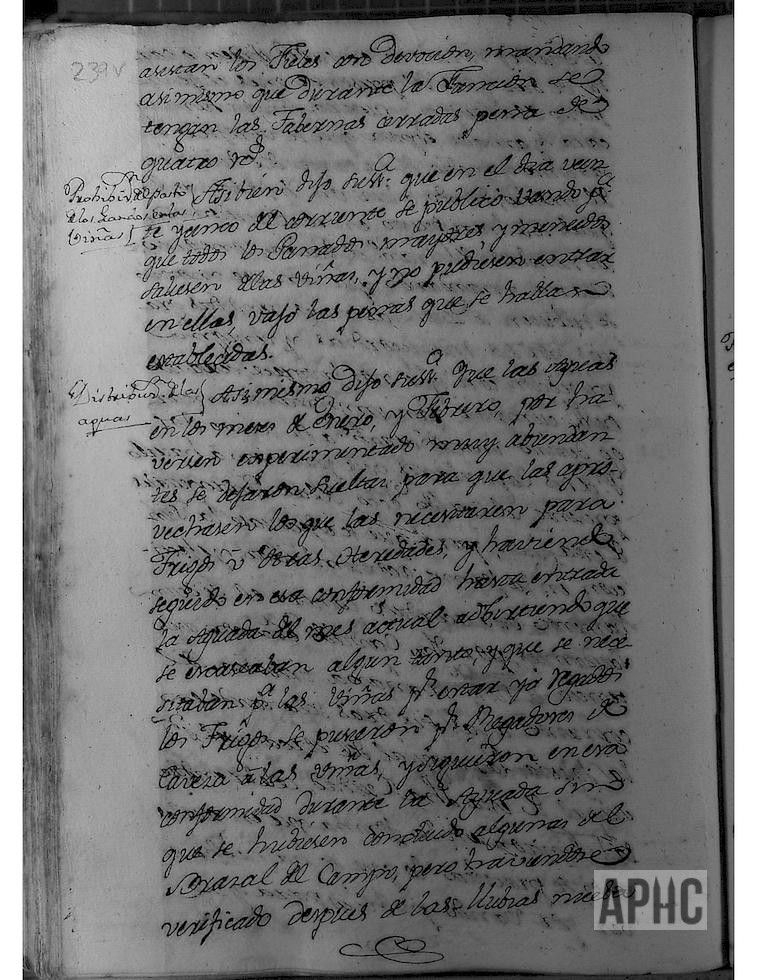 239v
asistan los Fieles con devocion, mandando
asimismo que durante la Funcion se
tengan las Tabernas cerradas pena de
quatro rs.
Prohibion. del pasto
de los Ganados en las
Viñas
Asibien dijo su sria. que en el dia vein
te y cinco del corriente se publicó vando pa.
que todos los Ganados mayores y menudos
saliesen de las viñas, y no pudiesen entrar
en ellas, vajo las penas que se hallan
establecidas.
Distribucn. de las
aguas
Asimesmo dijo su sria. Que las Aguas
en los meses de Enero, y Febrero, por ha
versen experimentado muy abundan
tes se dejaron sueltas para que las apro-
vechasen los que las necesitaren para
Trigos u otras Heredades, y haviendo
seguido en esa conformidad hasta entrada
la Aguada del mes actual advirtiendo que
se escaseaban algun tanto, y que se nece
sitaban pa. las viñas pr. estar ya regados
los Trigos, se pusieron pr. Regadores de
Cabeza a las viñas, y siguieron en esa
conformidad durante la Aguada sin
que se hubiesen concluido algunas del
Brazal del Campo, pero haviendose
verificado despues de las llubias nuebas
APHC